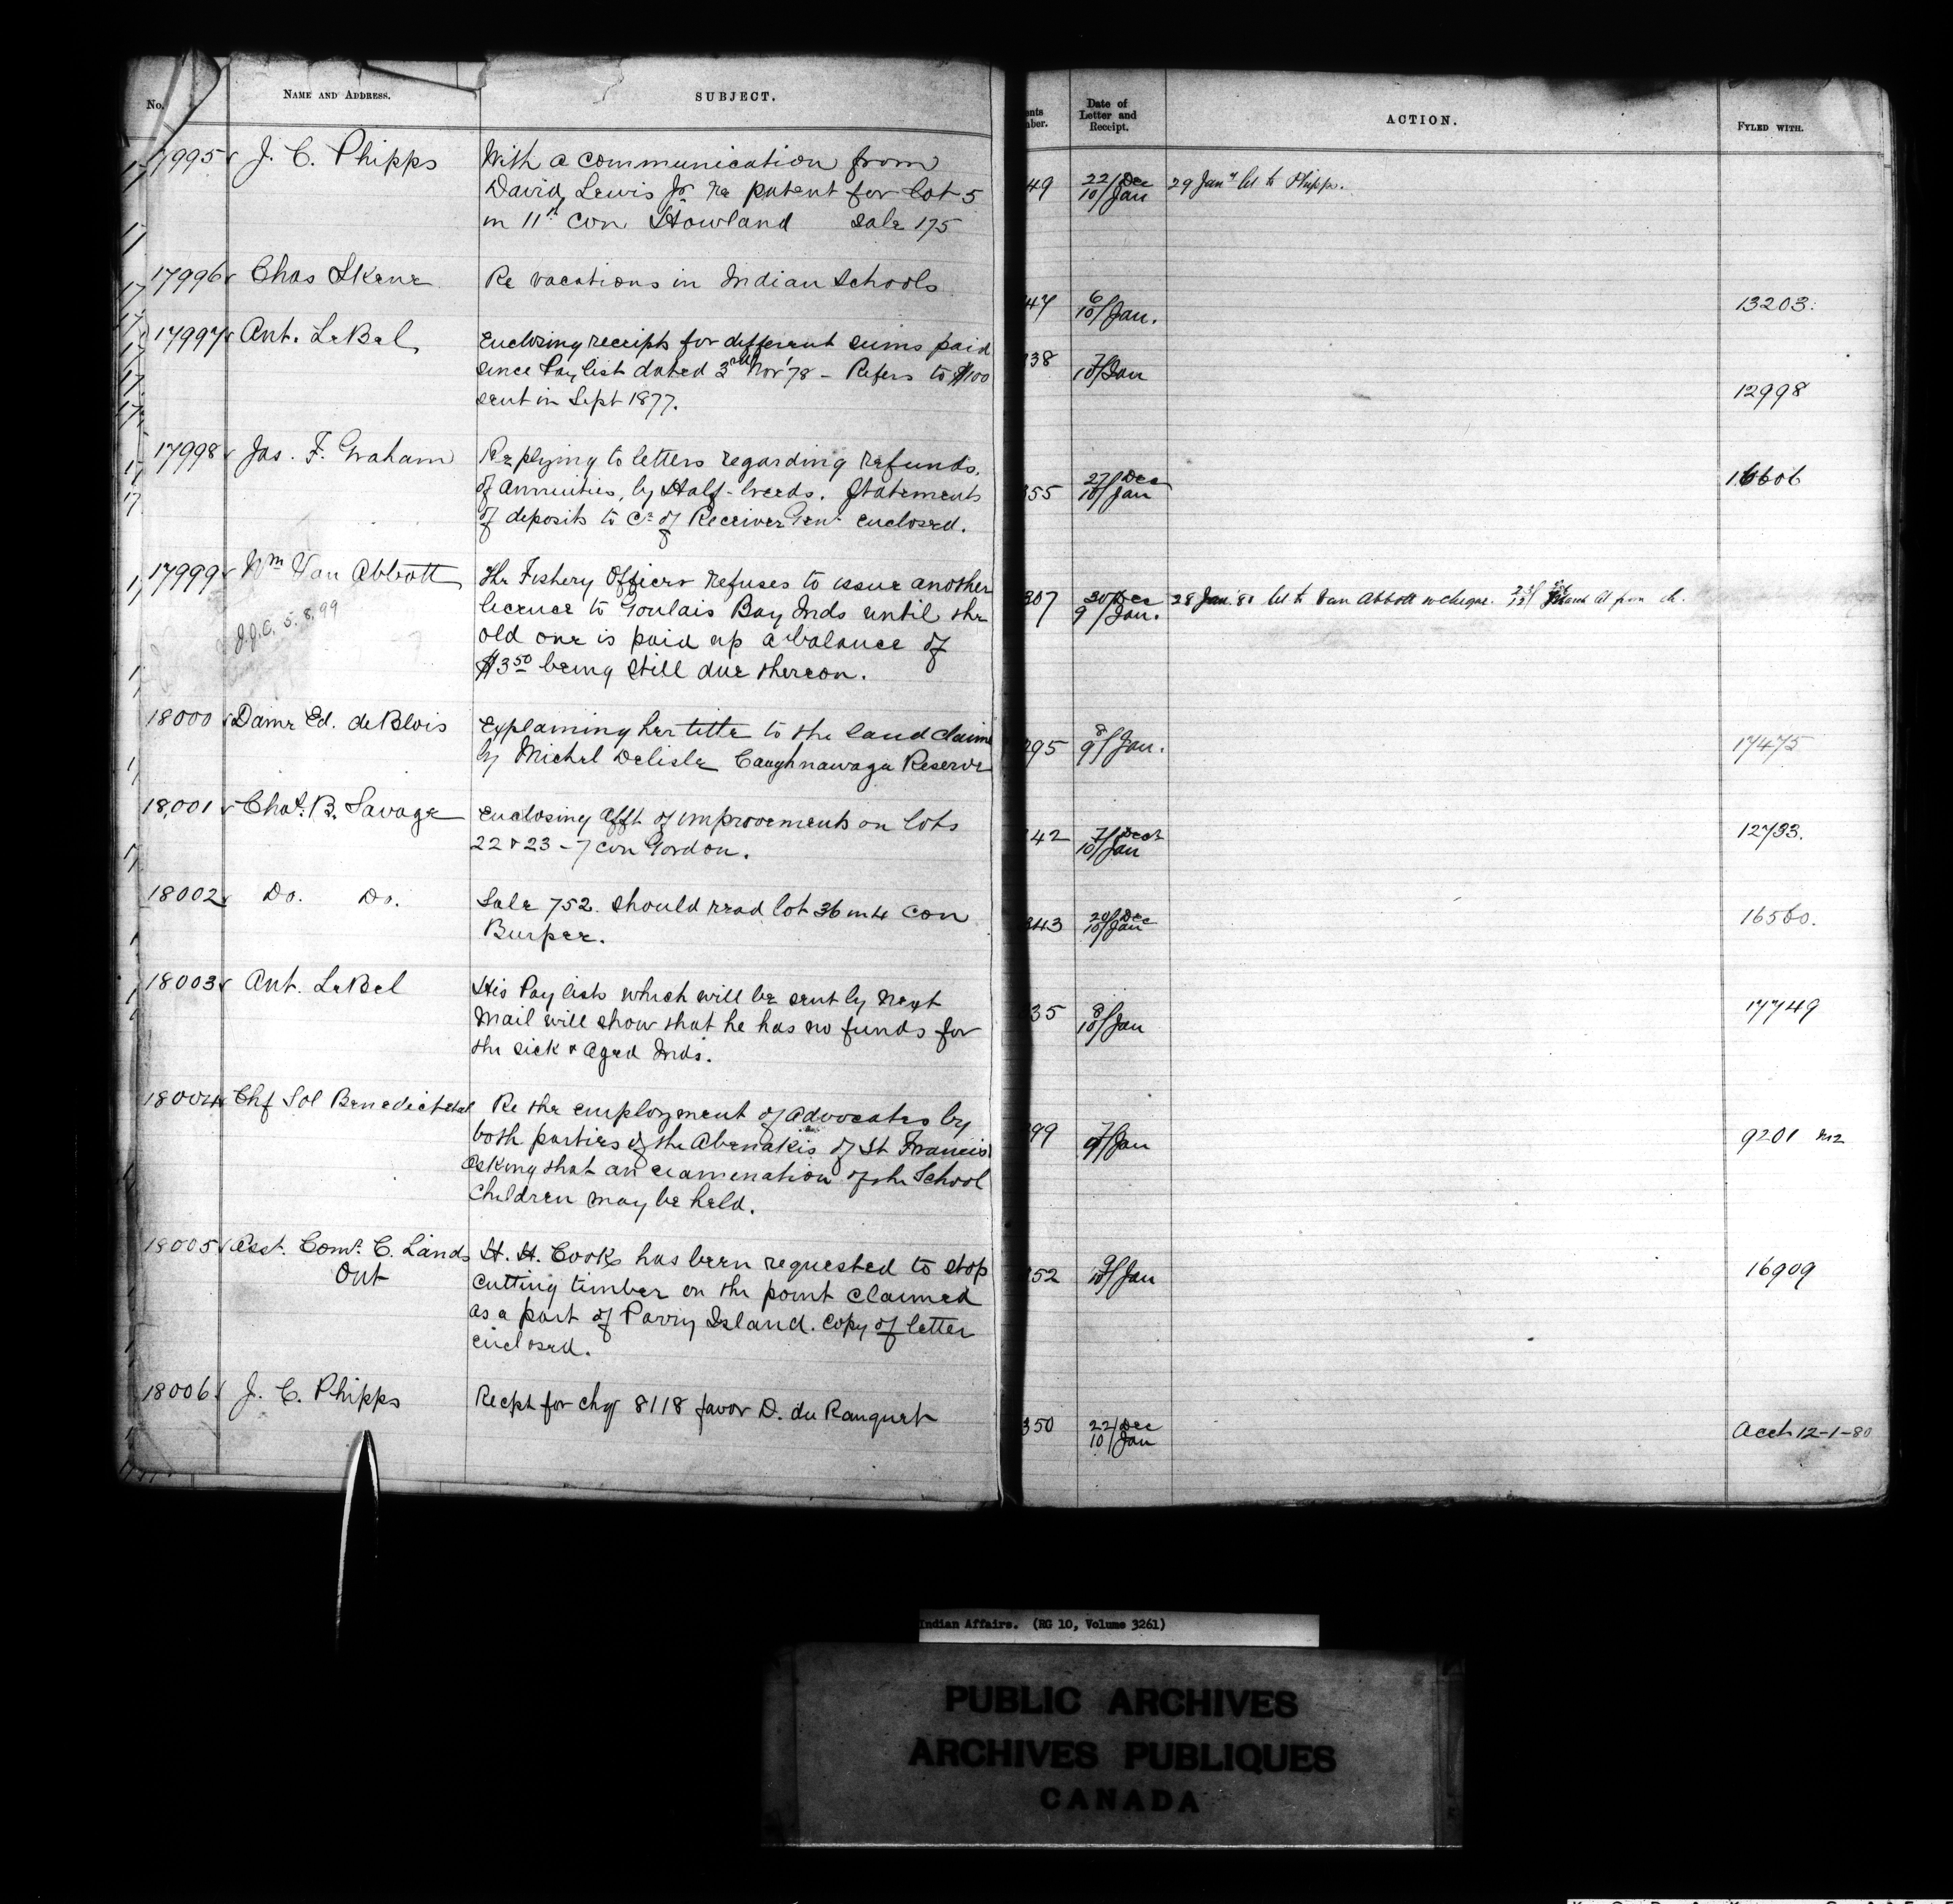 No. NAME AND ADDRESS. SUBJECT.
17995 J. C. Phipps With a communication from
David Lewis Jr. re patent for lot 5
in 11th con Howland Sale 175
17996 Chas Skene Re vacations in Indian Schools
17997 Ant. LeBel Enclosing receipts for different sums paid
since Pay list dated 3rd Nov '78 - Refers to $100
sent in Sept 1877.
17998 Jas. F. Graham Replying to letters regarding refunds
of annuities, by Half-breeds. Statements
of deposits to Cr of Receiver Genl enclosed.
17999 Wm Van Abbott The Fishery Officer refuses to issue another
license to Goulais Bay Inds until the
J.J.C. 5.8.99 old one is paid up a balance of
$3.50 being still due thereon.
18000 Dame Ed. de Blois Explaining her title to the land claimed
by Michel Delisle Caughnawaga Reserve
18,001 Chat. B. Savage Enclosing afft of improvements on lots
22 & 23 - 7 con Gordon.
18002 Do. Do. Sale 752. should read lot 36 in 4 con
Burpee.
18003 Ant. LeBel His Pay lists which will be sent by next
Mail will show that he has no funds for
the sick & aged Inds.
18004 Chf Sol Benedict etal Re the employment of advocates by
both parties of the Abenakis of St Francis
Asking that an examination of the School
Children may be held.
18005 Asst. Comr. C. Lands H. H. Cook has been requested to stop
Ont cutting timber on the point claimed
as a part of Parry Island. Copy of letter
enclosed.
18006 J. C. Phipps Recpt for chq 8118 favor D. du Ranquet
ents Date of
mber. Letter and ACTION. FYLED WITH.
Receipt.
49 22/Dec 29 Jany let to Phipps.
10/Jan
47 6/
10/Jan. 13203.
38 7/
10/Jan
12998
27/Dec 16606
355 10/Jan
307 30/Dec 28 Jan. 80 let to Van Abbott w cheque.
9/Jan.
295 8/
9/Jan. 17475
342 7/Decr 12733.
10/Jan
343 20/Dec 16560.
10/Jan
35 8/
10/Jan 17749
99 7/
9/Jan 9201 m2
352 9/
10/Jan 16909
350 22/Dec
10/Jan Acct 12-1-80
Indian Affairs. (RG 10, Volume 3261)
PUBLIC ARCHIVES
ARCHIVES PUBLIQUES
CANADA